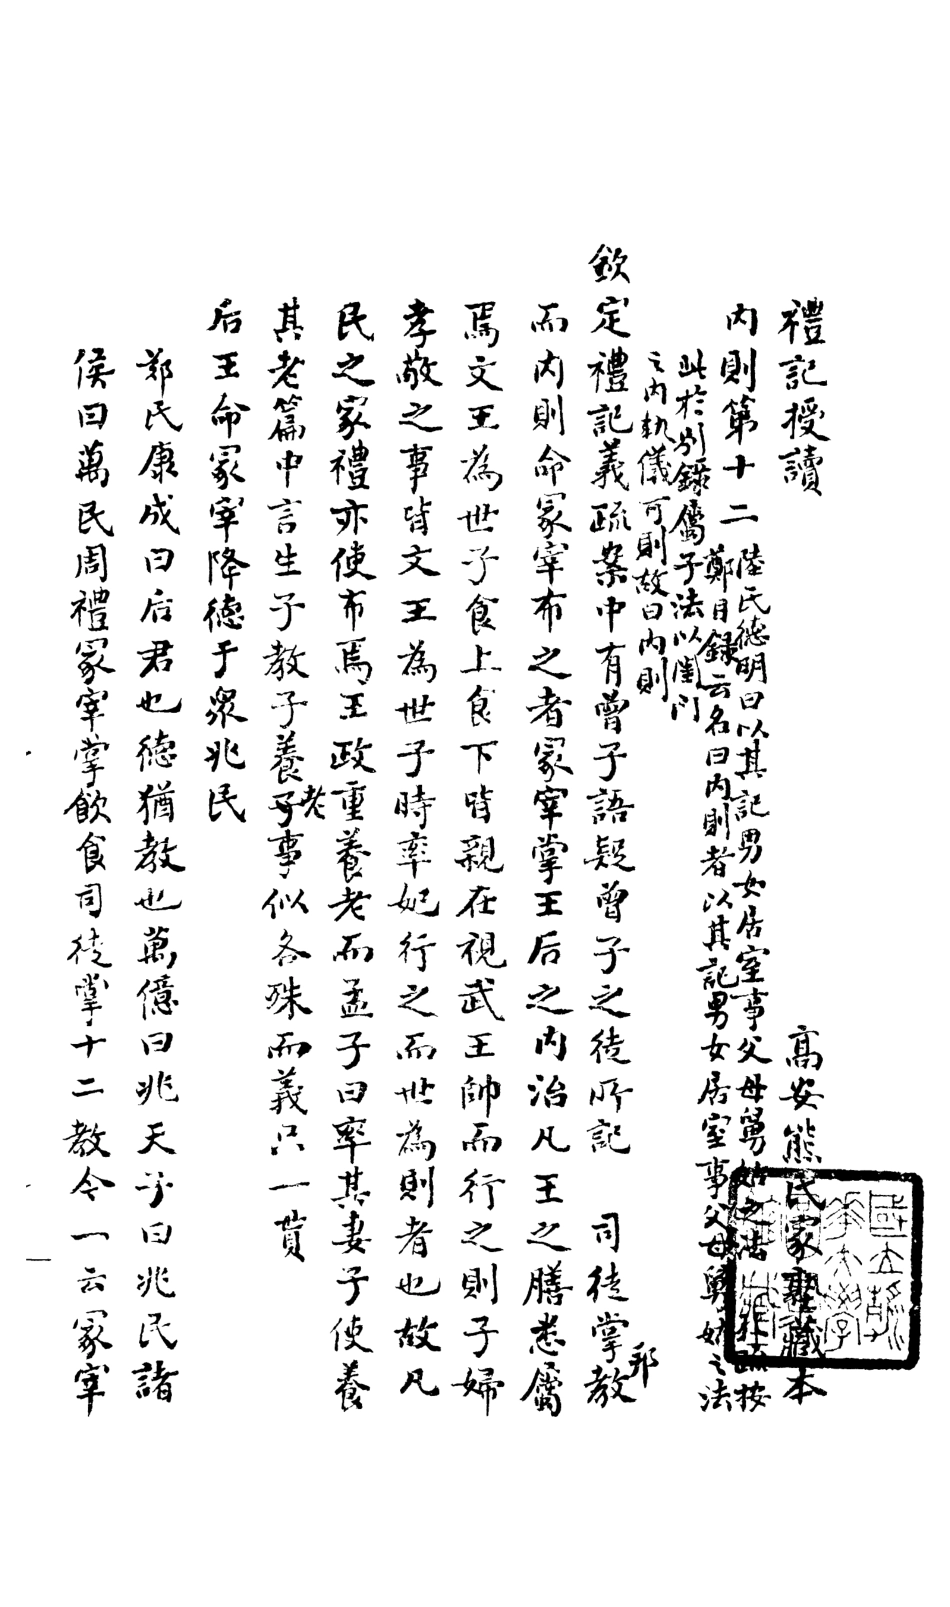 禮記授讀　高安熊氏家塾藏本
內則第十二　陸氏德明曰以其記男女居室事父母舅姑之法孔疏按
鄭目録云名曰內則者以其記男女居室事父母舅姑之法
此於別錄屬子法以閨門
之內執儀可則故曰內則
欽定禮記義疏案中有曾子語疑曾子之徒所記　司徒掌邦教
而內則命冡宰布之者冡宰掌王后之內治凡王之膳悉屬
焉文王為世子食上食下皆親在視武王帥而行之則子婦
孝敬之事皆文王為世子時率妃行之而世為則者也故凡
民之家禮亦使布焉王政重養老而孟子曰率其妻子使養
其老篇中言生子教子養老事似各殊而義只一貫
后王命冡宰降德于眾兆民
鄭氏康成曰后君也德猶教也萬億曰兆天子曰兆民諸
侯曰萬民周禮冡宰掌飲食司徒掌十二教今一云冡宰